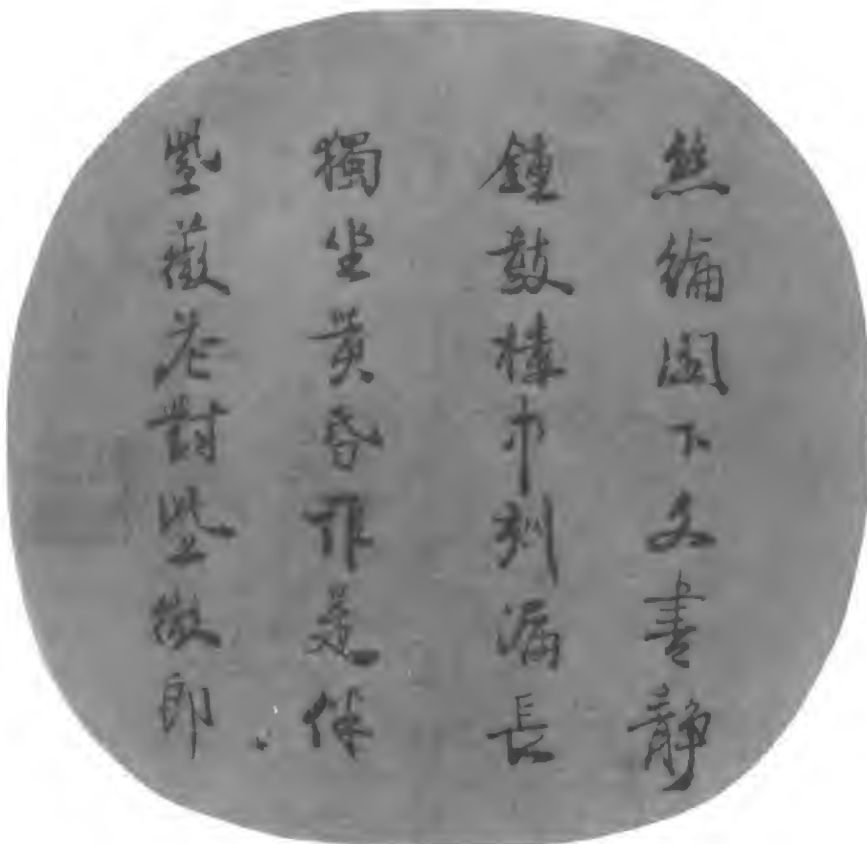 絲綸閣下文書靜
鍾鼓樓中刻漏長
獨坐黃昏誰是伴
紫薇花對紫微郎